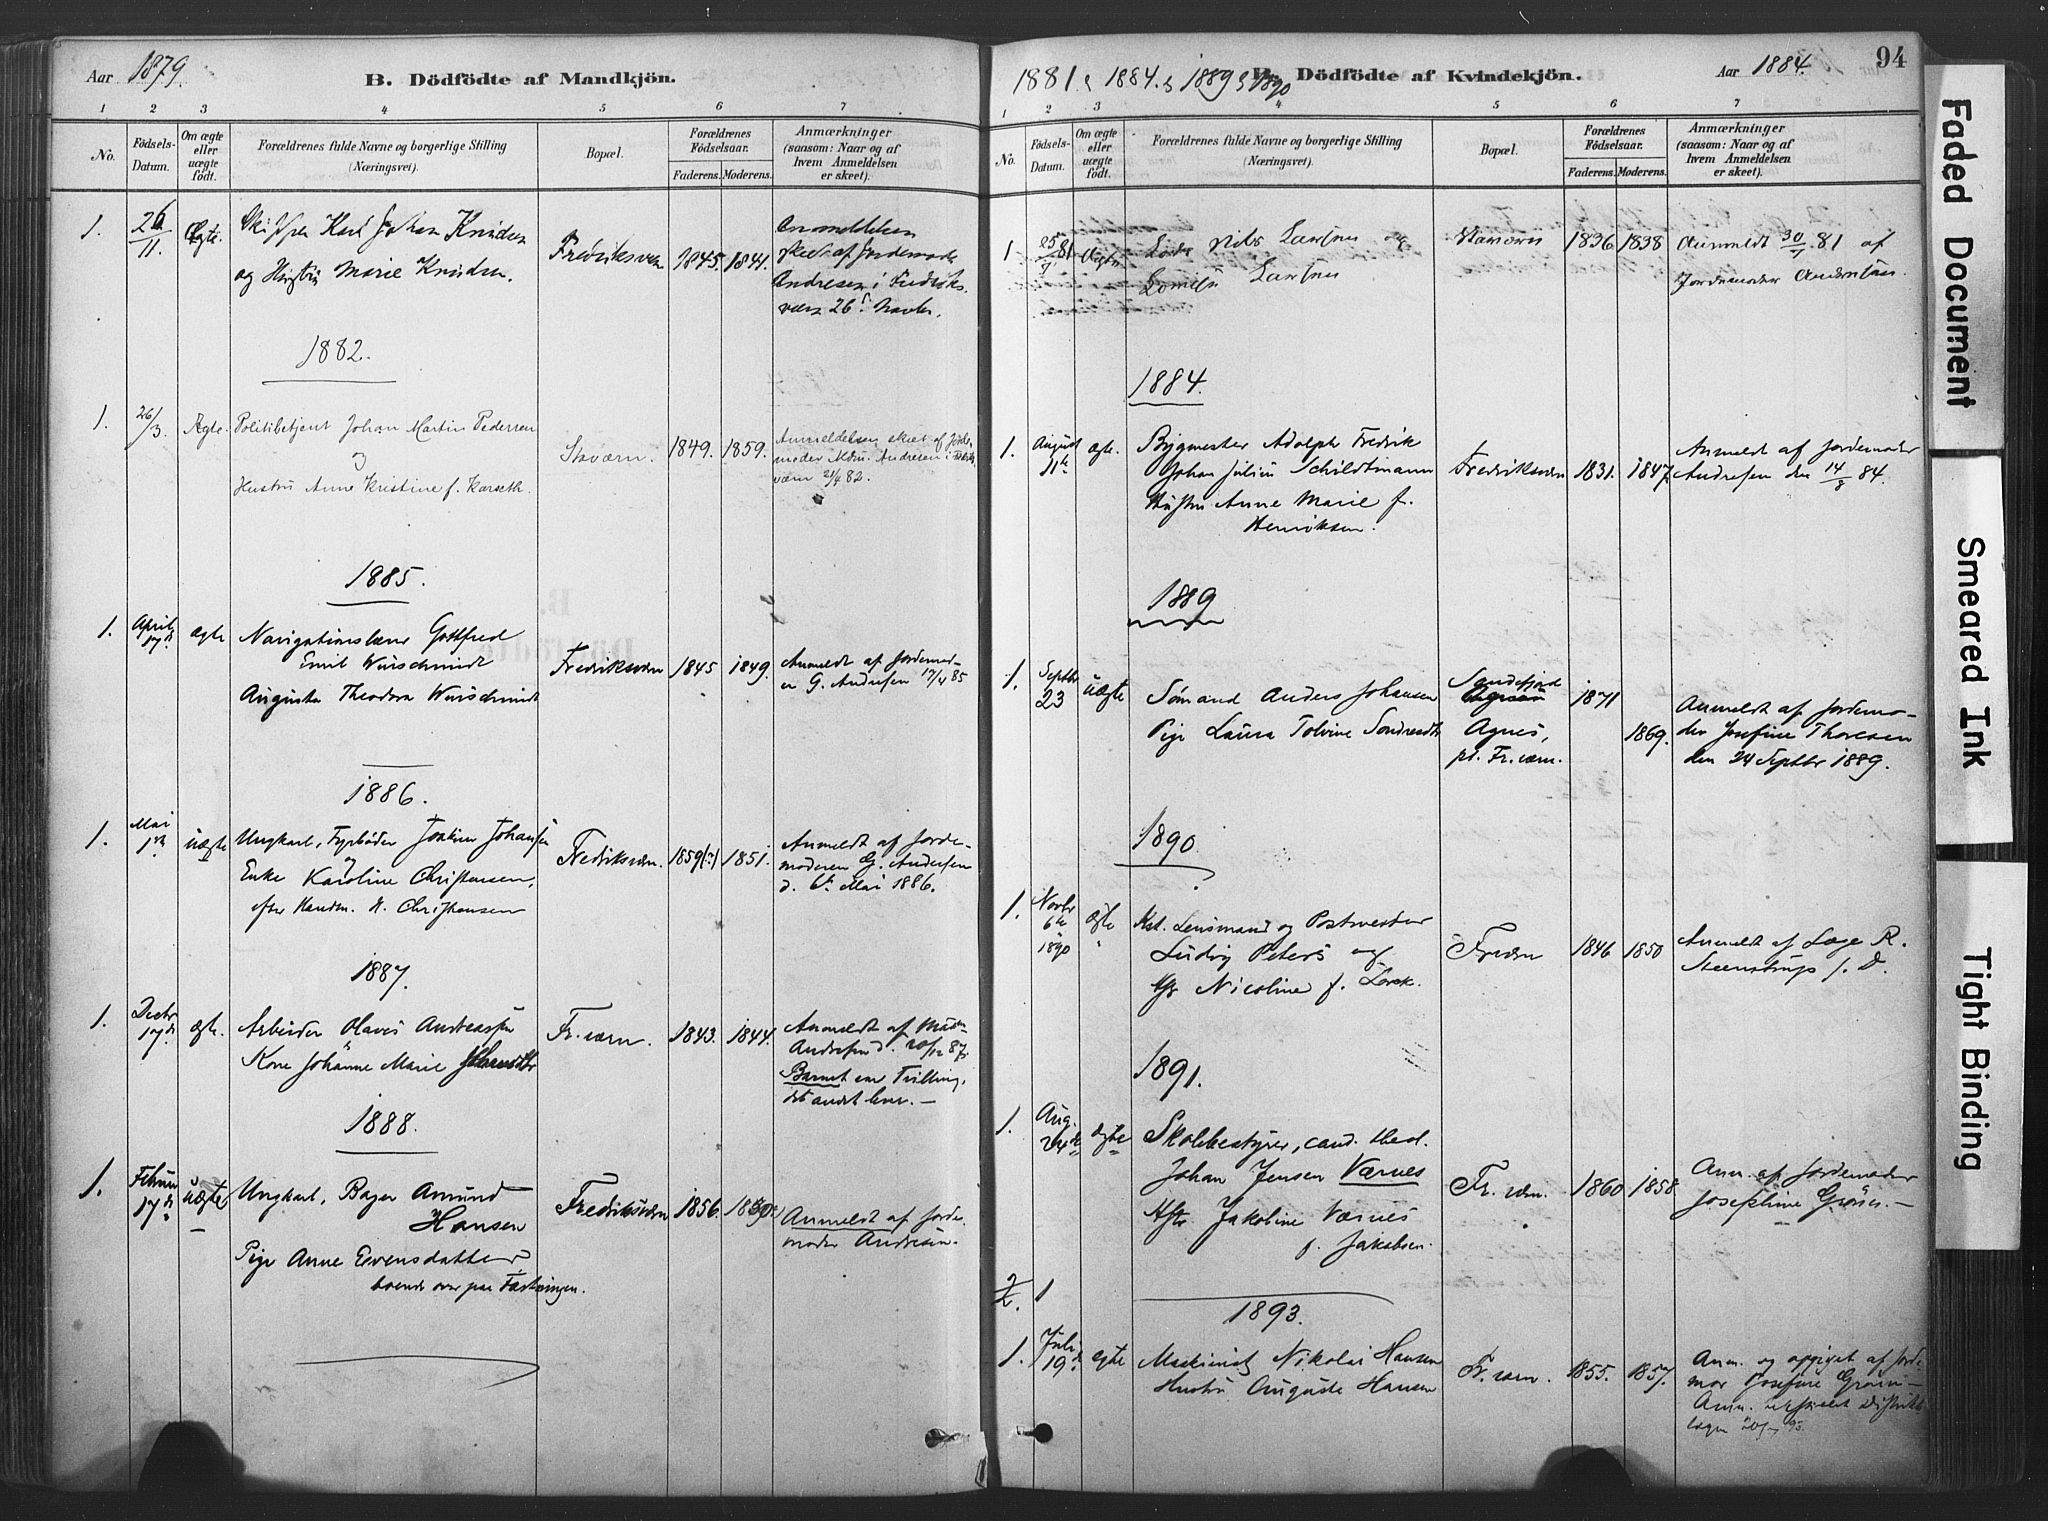 Aar 1879.
B. Dödfödte af Mandkjön.
1 2 3 4 5 6 7
No.
Födsels-Datum.
Om ægte eller uægte födt.
Forældrenes fulde Navne og borgerlige Stilling
(Næringsvei).
Bopæl.
Forældrenes Födselsaar.
Faderens. Moderens.
Anmærkninger
(saasom: Naar og af
hvem Anmeldelsen
er skeet).
1. 26/11. Ægte. Karl Johan Knudsen
og Hustru Marie Knudsen.
Fredriksværn 1845. 1841.
Anmeldelsen
skeet af Jordemoder
Andresen i Fredriks-
værn 26 Novbr.
1882.
1. 26/3. Ægte. Politibetjent Johan Martin Pedersen
og
Hustru Anne Kristine f. Karseth.
Staværn. 1849. 1859.
Anmeldelsen skeet af Jorde-
moder Mdm. Andresen i Fredriks-
værn 2/4 82.
1885.
1. April 17d ægte Navigationslærer Gottfred
Emil Wurschmidt
Augusta Theodora Wurschmidt
Fredriksværn 1845 1849.
Anmeldt af Jordemod-
er G. Andresen 17/4 85
1886.
1. Mai 1ste uægte Ungkarl, Fyrbøder Joakim Johansen
og
Enke Karoline Christensen,
efter Handm. H. Christensen
Fredriksværn. 1859(?) 1851.
Anmeldt af Jorde-
moderen G. Andersen
d. 6te Mai 1886.
1887.
1. Decbr 17d ægte. Arbeider Olaves Andreassen
Kone Johanne Marie
Fr.værn. 1843. 1844.
Anmeldt af Mdm.
Andresen d. 20/12 87.
Barnet var Tvilling,
det andet lever. —
1888.
1. Februar 17d uægte Ungkarl, Bager Amund
Hansen
Pige Anne Evensdatter,
boende over paa Fæstningen.
Fredriksværn 1856.
Anmeldt af Jorde-
moder Andresen.
1881 & 1884. & 1889 & 1890
B. Dödfödte af Kvindekjön.
Aar 1884. 94
1 2 3 4 5 6 7
No.
Födsels-Datum.
Om ægte eller uægte födt.
Forældrenes fulde Navne og borgerlige Stilling
(Næringsvei).
Bopæl.
Forældrenes Födselsaar.
Faderens. Moderens.
Anmærkninger
(saasom: Naar og af
hvem Anmeldelsen
er skeet).
1 25/1 81 Ægte Lods Nils Larsen og
Lovise Larsen
Staværn 1836 1838
Anmeldt 30/1 81 af
Jordemoder Andersen.
1884.
1. August 11te ægte. Bygmester Adolph Fredrik
Johan Julius Schildtmann
Hustru Anne Marie f.
Henriksen.
Fredriksværn 1831. 1847.
Anmeldt af Jordemoder
Andresen den 14/8 84.
1889
1. Septbr 23 uægte Sømand Anders Johansen
Pige Laura Tolvine
Sandefjord
Agnes,
pt. Fr.værn.
1871 1869.
Anmeldt af Jordemo-
der Josefine Thoresen
den 24 Septbr 1889.
1890
1. Novbr 6te 1890 ægte Kst. Lensmand og Postmester
Ludvig Peters og
Hfr Nicoline f. Lorck.
Fr.værn 1846 1850
Anmeldt af Læge R.
Steenstrup s. D.
1891.
1. Aug. 24d ægte Skolebestyrer, cand. theol.
Johan Jensen Værnes
Hfr. Jakobine Værnes
f. Jakobsen.
Fr. værn. 1860 1858
Anm. af Jordemoder
Josephine Grøner. —
2/2. 1
1893.
1. Juli 19d ægte Maskinist Nikolai Hansen
Hustru Auguste Hansen
Fr. værn. 1855. 1857.
Anm. og opgivet af Jorde-
mor Josefine
Anm. Distrikts-
lægen
Faded Document
Smeared Ink
Tight Binding